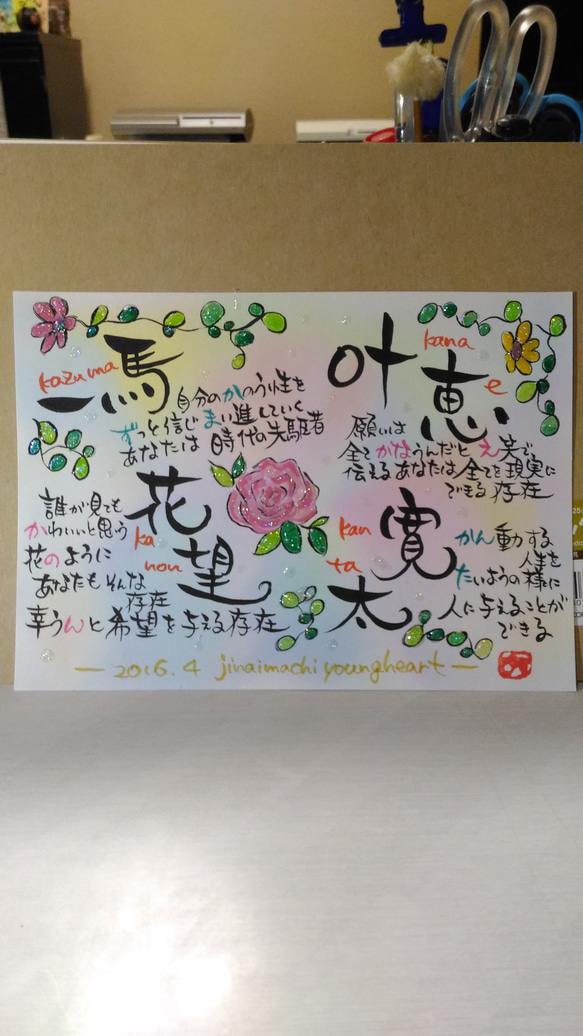 kazuma
一馬
自分のかのう性を
ずっと信じまい進していく
あなたは時代の先駆者
叶恵
kana
e
願いは
全てかなうんだとえ笑で
伝えるあなたは全てを現実に
できる存在
花望
ka
non
誰が見ても
かわいいと思う
花のように
あなたもそんな
存在
幸うんと希望を与える存在
寛太
kan
ta
かん動する
人生を
たいようの様に
人に与えることが
できる
— 2016.4 jinaimachi youngheart —